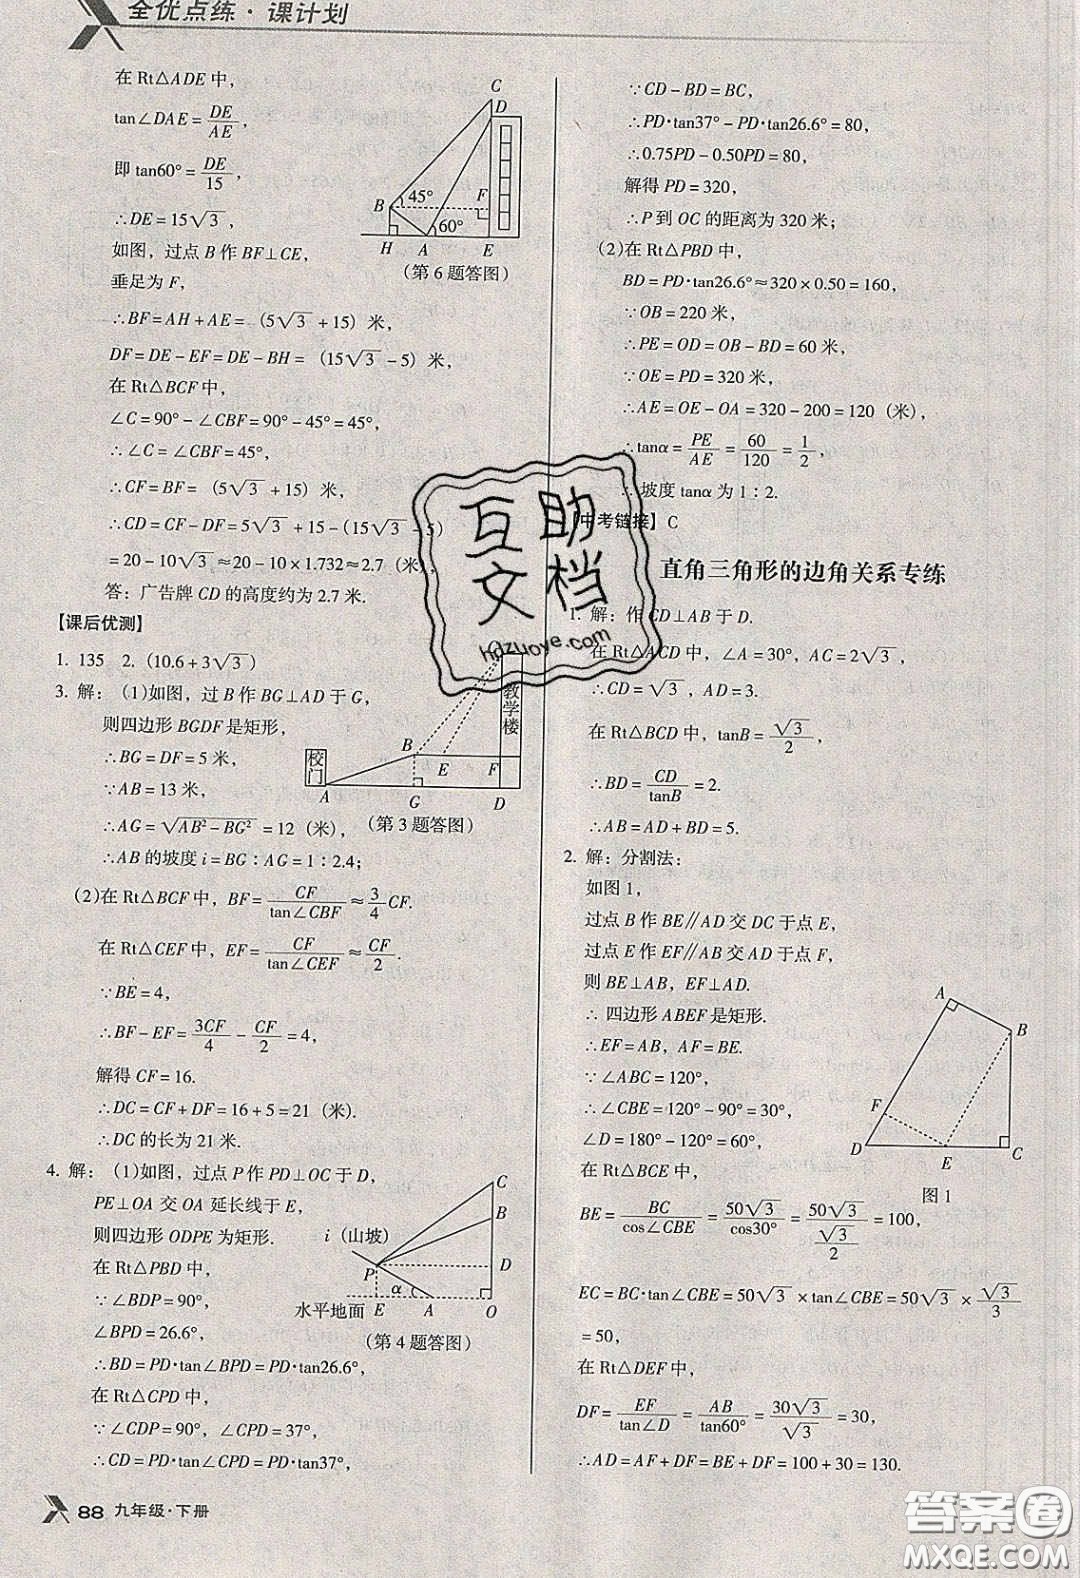 全优点练·课计划
在 Rt△ADE 中，
tan∠DAE = DE/AE，
即 tan60° = DE/15，
∴DE = 15√3．
如图，过点 B 作 BF⊥CE，
垂足为 F，
∴BF = AH + AE =（5√3 + 15）米，
DF = DE − EF = DE − BH =（15√3 − 5）米，
在 Rt△BCF 中，
∠C = 90° − ∠CBF = 90° − 45° = 45°，
∴∠C = ∠CBF = 45°，
∴CF = BF =（5√3 + 15）米，
∴CD = CF − DF = 5√3 + 15 −（15√3 − 5）
= 20 − 10√3 ≈ 20 − 10×1.732 ≈ 2.7（米），
答：广告牌 CD 的高度约为 2.7 米．
C
D
45°
B
F
60°
H A E
（第 6 题答图）
【课后优测】
1. 135 2.（10.6 + 3√3）
3. 解：（1）如图，过 B 作 BG⊥AD 于 G，
则四边形 BGDF 是矩形，
∴BG = DF = 5 米，
∵AB = 13 米，
∴AG = √(AB² − BG²) = 12（米），
∴AB 的坡度 i = BG∶AG = 1∶2.4；
教学楼
校门
B
E F
A
G D
（第 3 题答图）
（2）在 Rt△BCF 中，BF = CF/tan∠CBF ≈ 3/4 CF．
在 Rt△CEF 中，EF = CF/tan∠CEF ≈ CF/2．
∵BE = 4，
∴BF − EF = 3CF/4 − CF/2 = 4，
解得 CF = 16．
∴DC = CF + DF = 16 + 5 = 21（米）．
∴DC 的长为 21 米．
4. 解：（1）如图，过点 P 作 PD⊥OC 于 D，
PE⊥OA 交 OA 延长线于 E，
则四边形 ODPE 为矩形．
在 Rt△PBD 中，
∵∠BDP = 90°，
∠BPD = 26.6°，
∴BD = PD·tan∠BPD = PD·tan26.6°，
在 Rt△CPD 中，
∵∠CDP = 90°，∠CPD = 37°，
∴CD = PD·tan∠CPD = PD·tan37°，
C
B
i（山坡）
P
D
α
水平地面 E A O
（第 4 题答图）
∵CD − BD = BC，
∴PD·tan37° − PD·tan26.6° = 80，
∴0.75PD − 0.50PD = 80，
解得 PD = 320，
∴P 到 OC 的距离为 320 米；
（2）在 Rt△PBD 中，
BD = PD·tan26.6° ≈ 320×0.50 = 160，
∵OB = 220 米，
∴PE = OD = OB − BD = 60 米，
∵OE = PD = 320 米，
∴AE = OE − OA = 320 − 200 = 120（米），
∴tanα = PE/AE = 60/120 = 1/2，
∴坡度 tanα 为 1∶2．
【中考链接】C
直角三角形的边角关系专练
1. 解：作 CD⊥AB 于 D．
在 Rt△ACD 中，∠A = 30°，AC = 2√3，
∴CD = √3，AD = 3．
在 Rt△BCD 中，tanB = √3/2，
∴BD = CD/tanB = 2．
∴AB = AD + BD = 5．
2. 解：分割法：
如图 1，
过点 B 作 BE∥AD 交 DC 于点 E，
过点 E 作 EF∥AB 交 AD 于点 F，
则 BE⊥AB，EF⊥AD．
∴四边形 ABEF 是矩形．
∴EF = AB，AF = BE．
∵∠ABC = 120°，
∴∠CBE = 120° − 90° = 30°，
∠D = 180° − 120° = 60°，
在 Rt△BCE 中，
BE = BC/cos∠CBE = 50√3/cos30° = 50√3/(√3/2) = 100，
EC = BC·tan∠CBE = 50√3 × tan∠CBE = 50√3 × √3/3
= 50，
在 Rt△DEF 中，
DF = EF/tan∠D = AB/tan60° = 30√3/√3 = 30，
∴AD = AF + DF = BE + DF = 100 + 30 = 130．
A
B
F
D E C
图 1
88 九年级·下册
互助文档
hdzuoye.com
答案圈
MXQE.COM